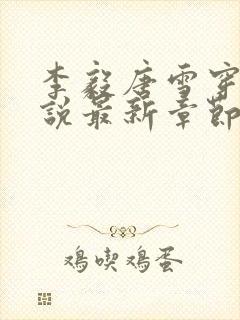 李毅唐雪穿
說最新章節
鸡喫鸡蛋